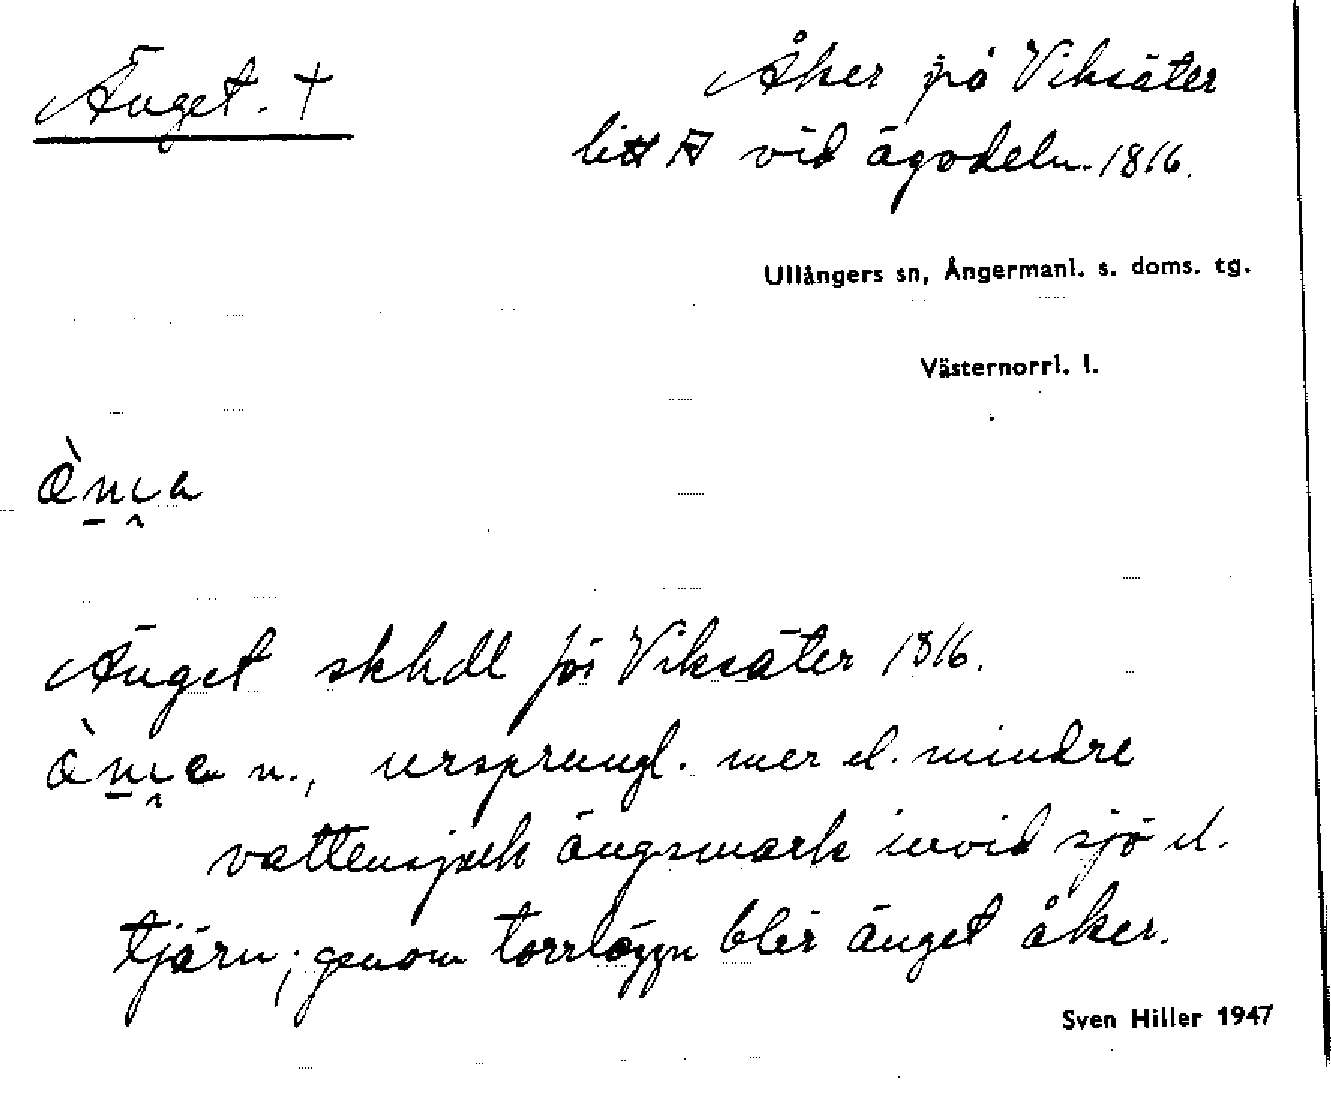 Änget. †
Åker på Viksäter
litt A vid ägodeln. 1816.
Ullångers sn, Ångermanl. s. doms. tg.
Västernorrl. l.
Änget skhdl för Viksäter 1816.
n., ursprungl. mer el. mindre
vattensjuk ängsmark invid sjö el.
tjärn; genom torrläggn blir änget åker.
Sven Hiller 1947